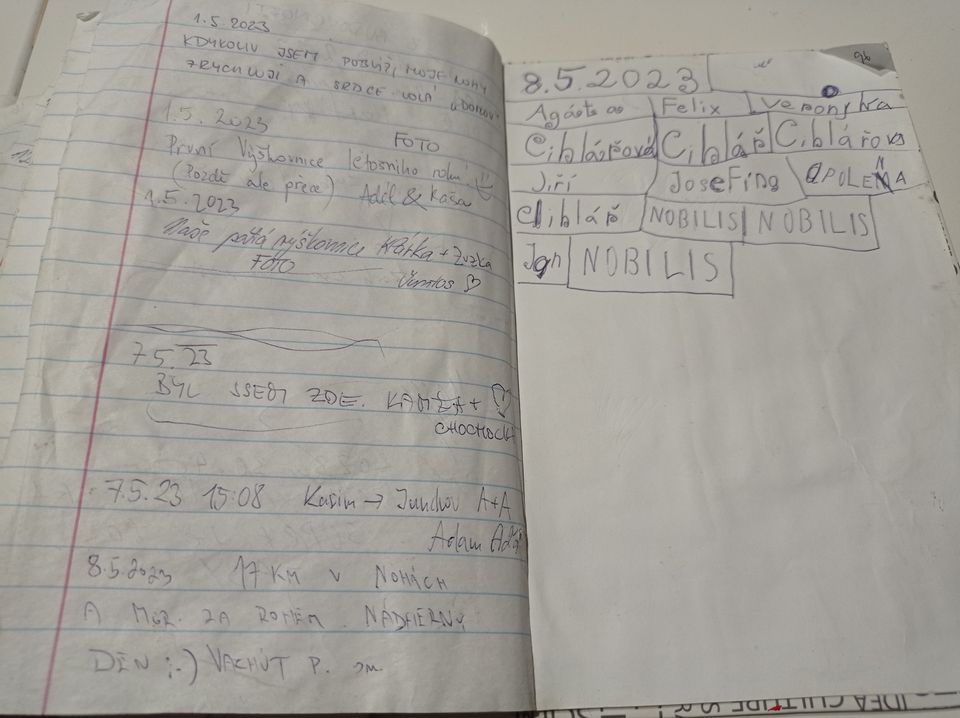 1.5.2023
KDYKOLIV JSEM POBLÍŽ, MOJE NOHY
ZRYCHLUJÍ A SRDCE VOLÁ "DOMOV"
1.5.2023 FOTO
První Výškovnice letošního roku!
(Pozdě ale přece) Adél & Kása
1.5.2023
Naše pátá výškovnice Klárka + Zuzka
FOTO
7.5.23
BYL JSEM ZDE. KAMŽA +
7.5.23 15:08 Kasim → Junchov A+A
Adam
8.5.2023 17 KM V NOHÁCH
A MGR. ZA ROHEM. NÁDHERNÝ
DEN :-) VACHUT P.
8.5.2023
Felix Veronika
Ciblářová Ciblář Ciblářová
Jiří Josefína APOLENA
Ciblář NOBILIS NOBILIS
Jan NOBILIS
96
IDEA CULTURE